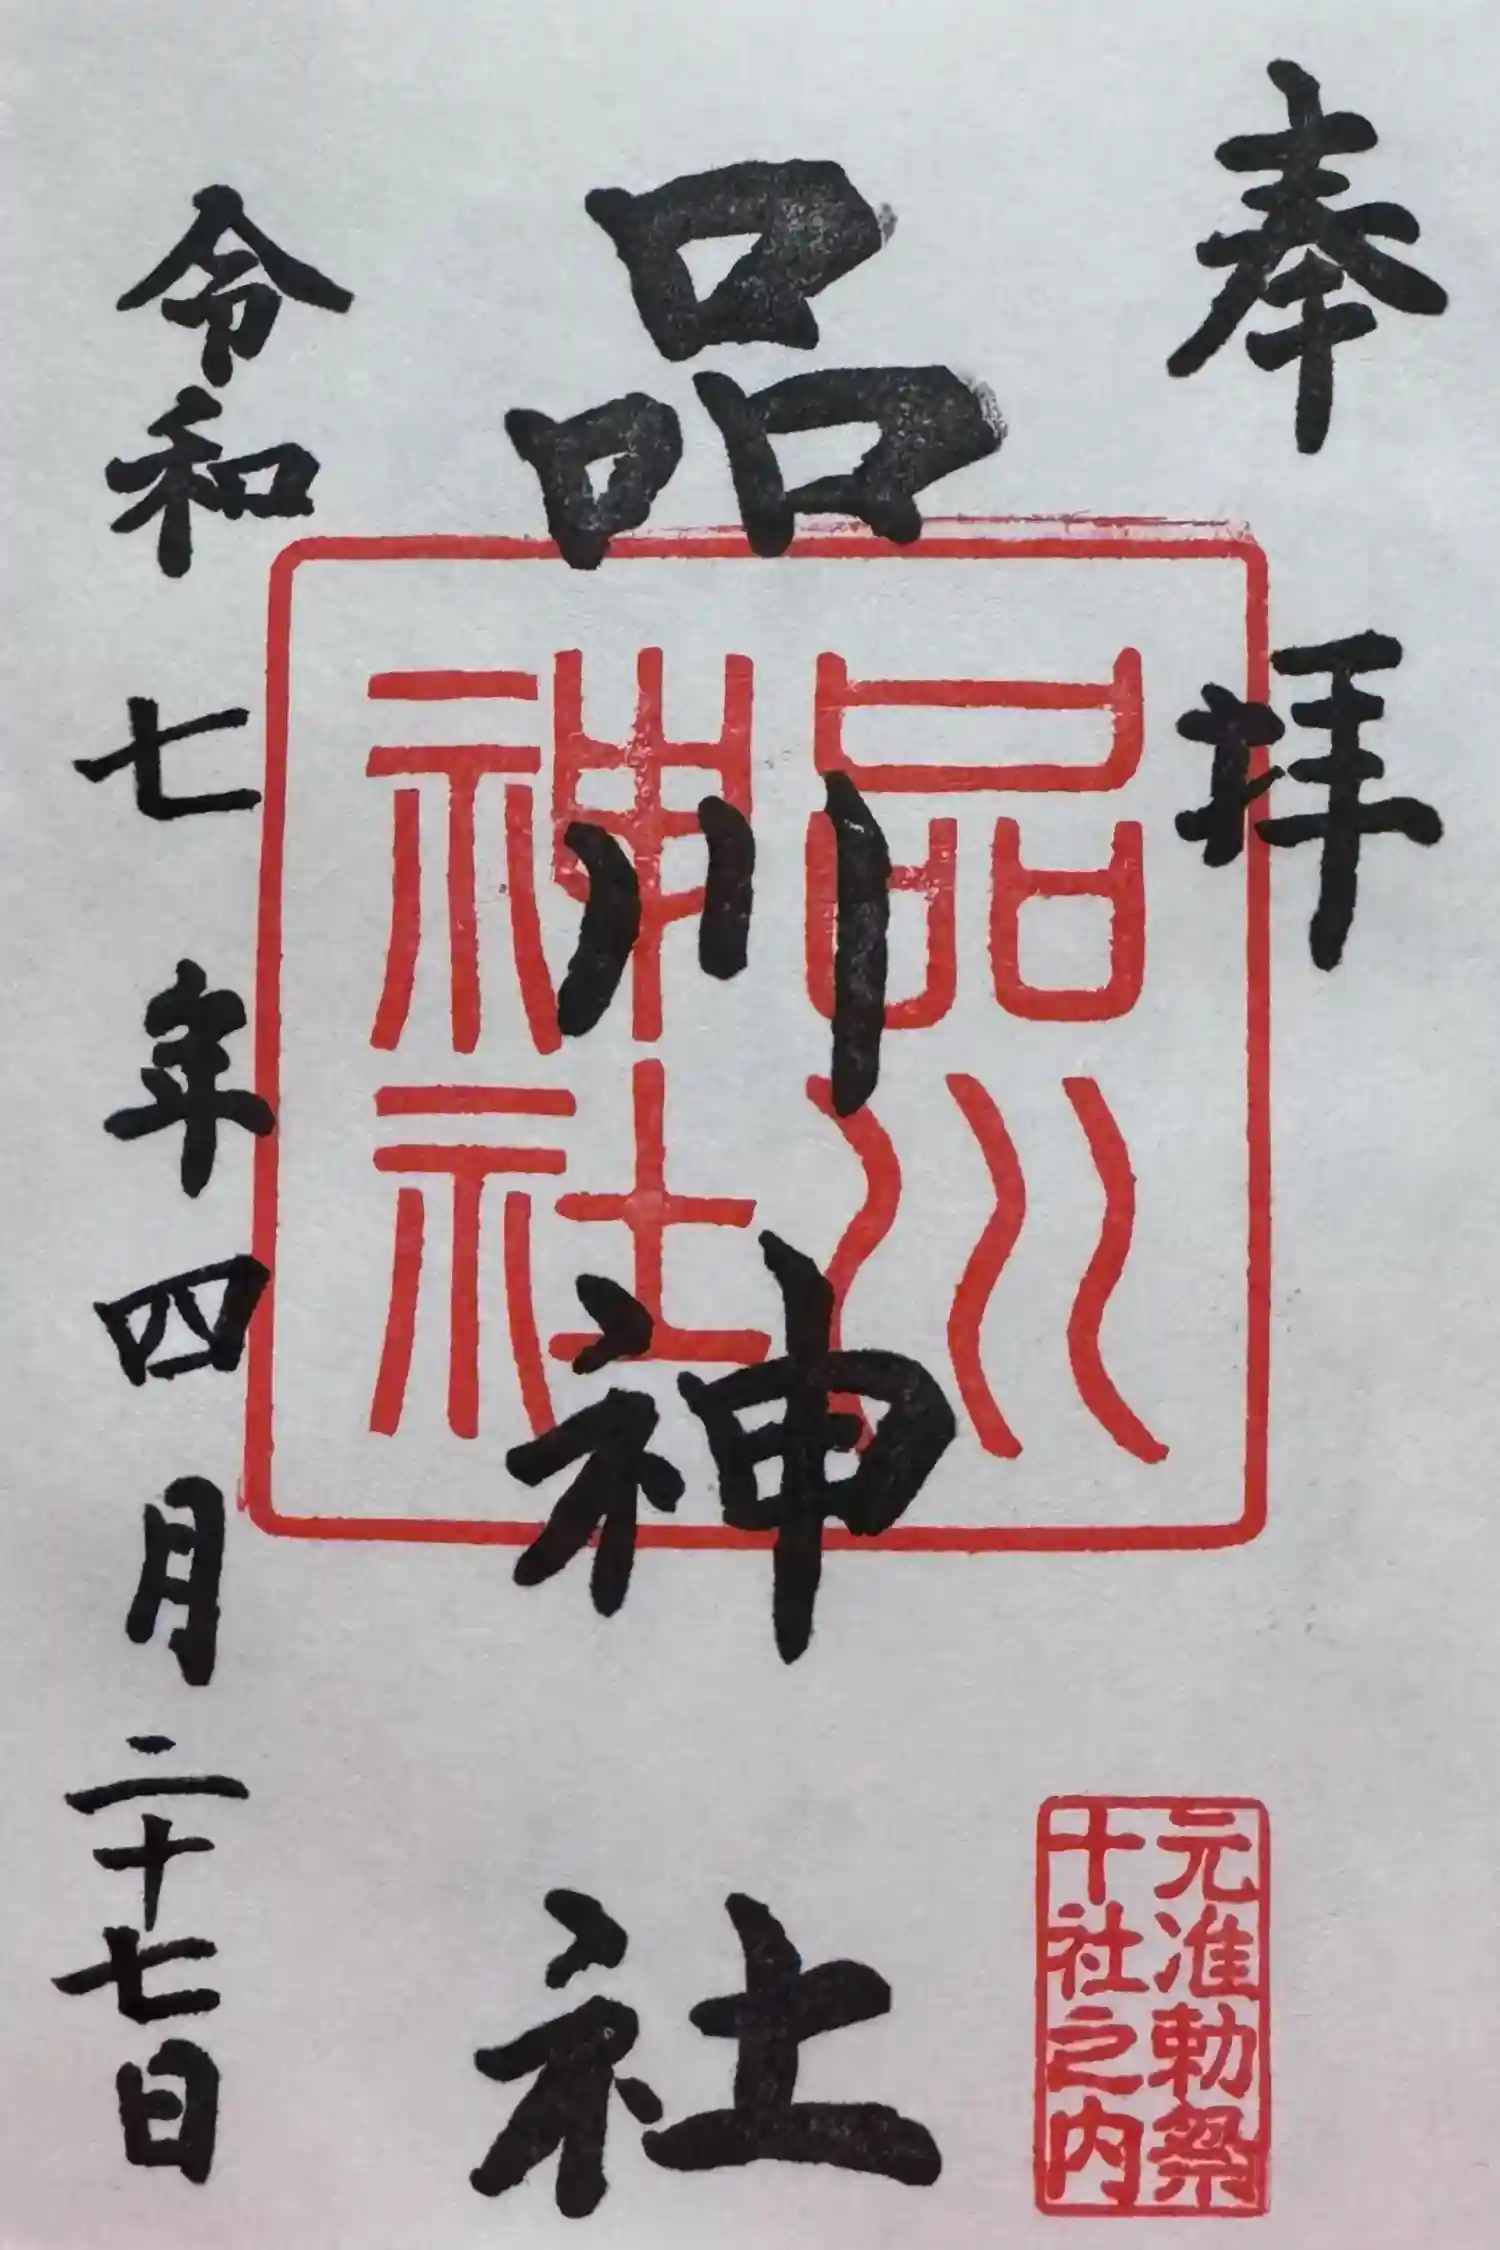 奉拝
元准勅祭
十社之内
品川神社
品川
神社
令和七年四月二十七日